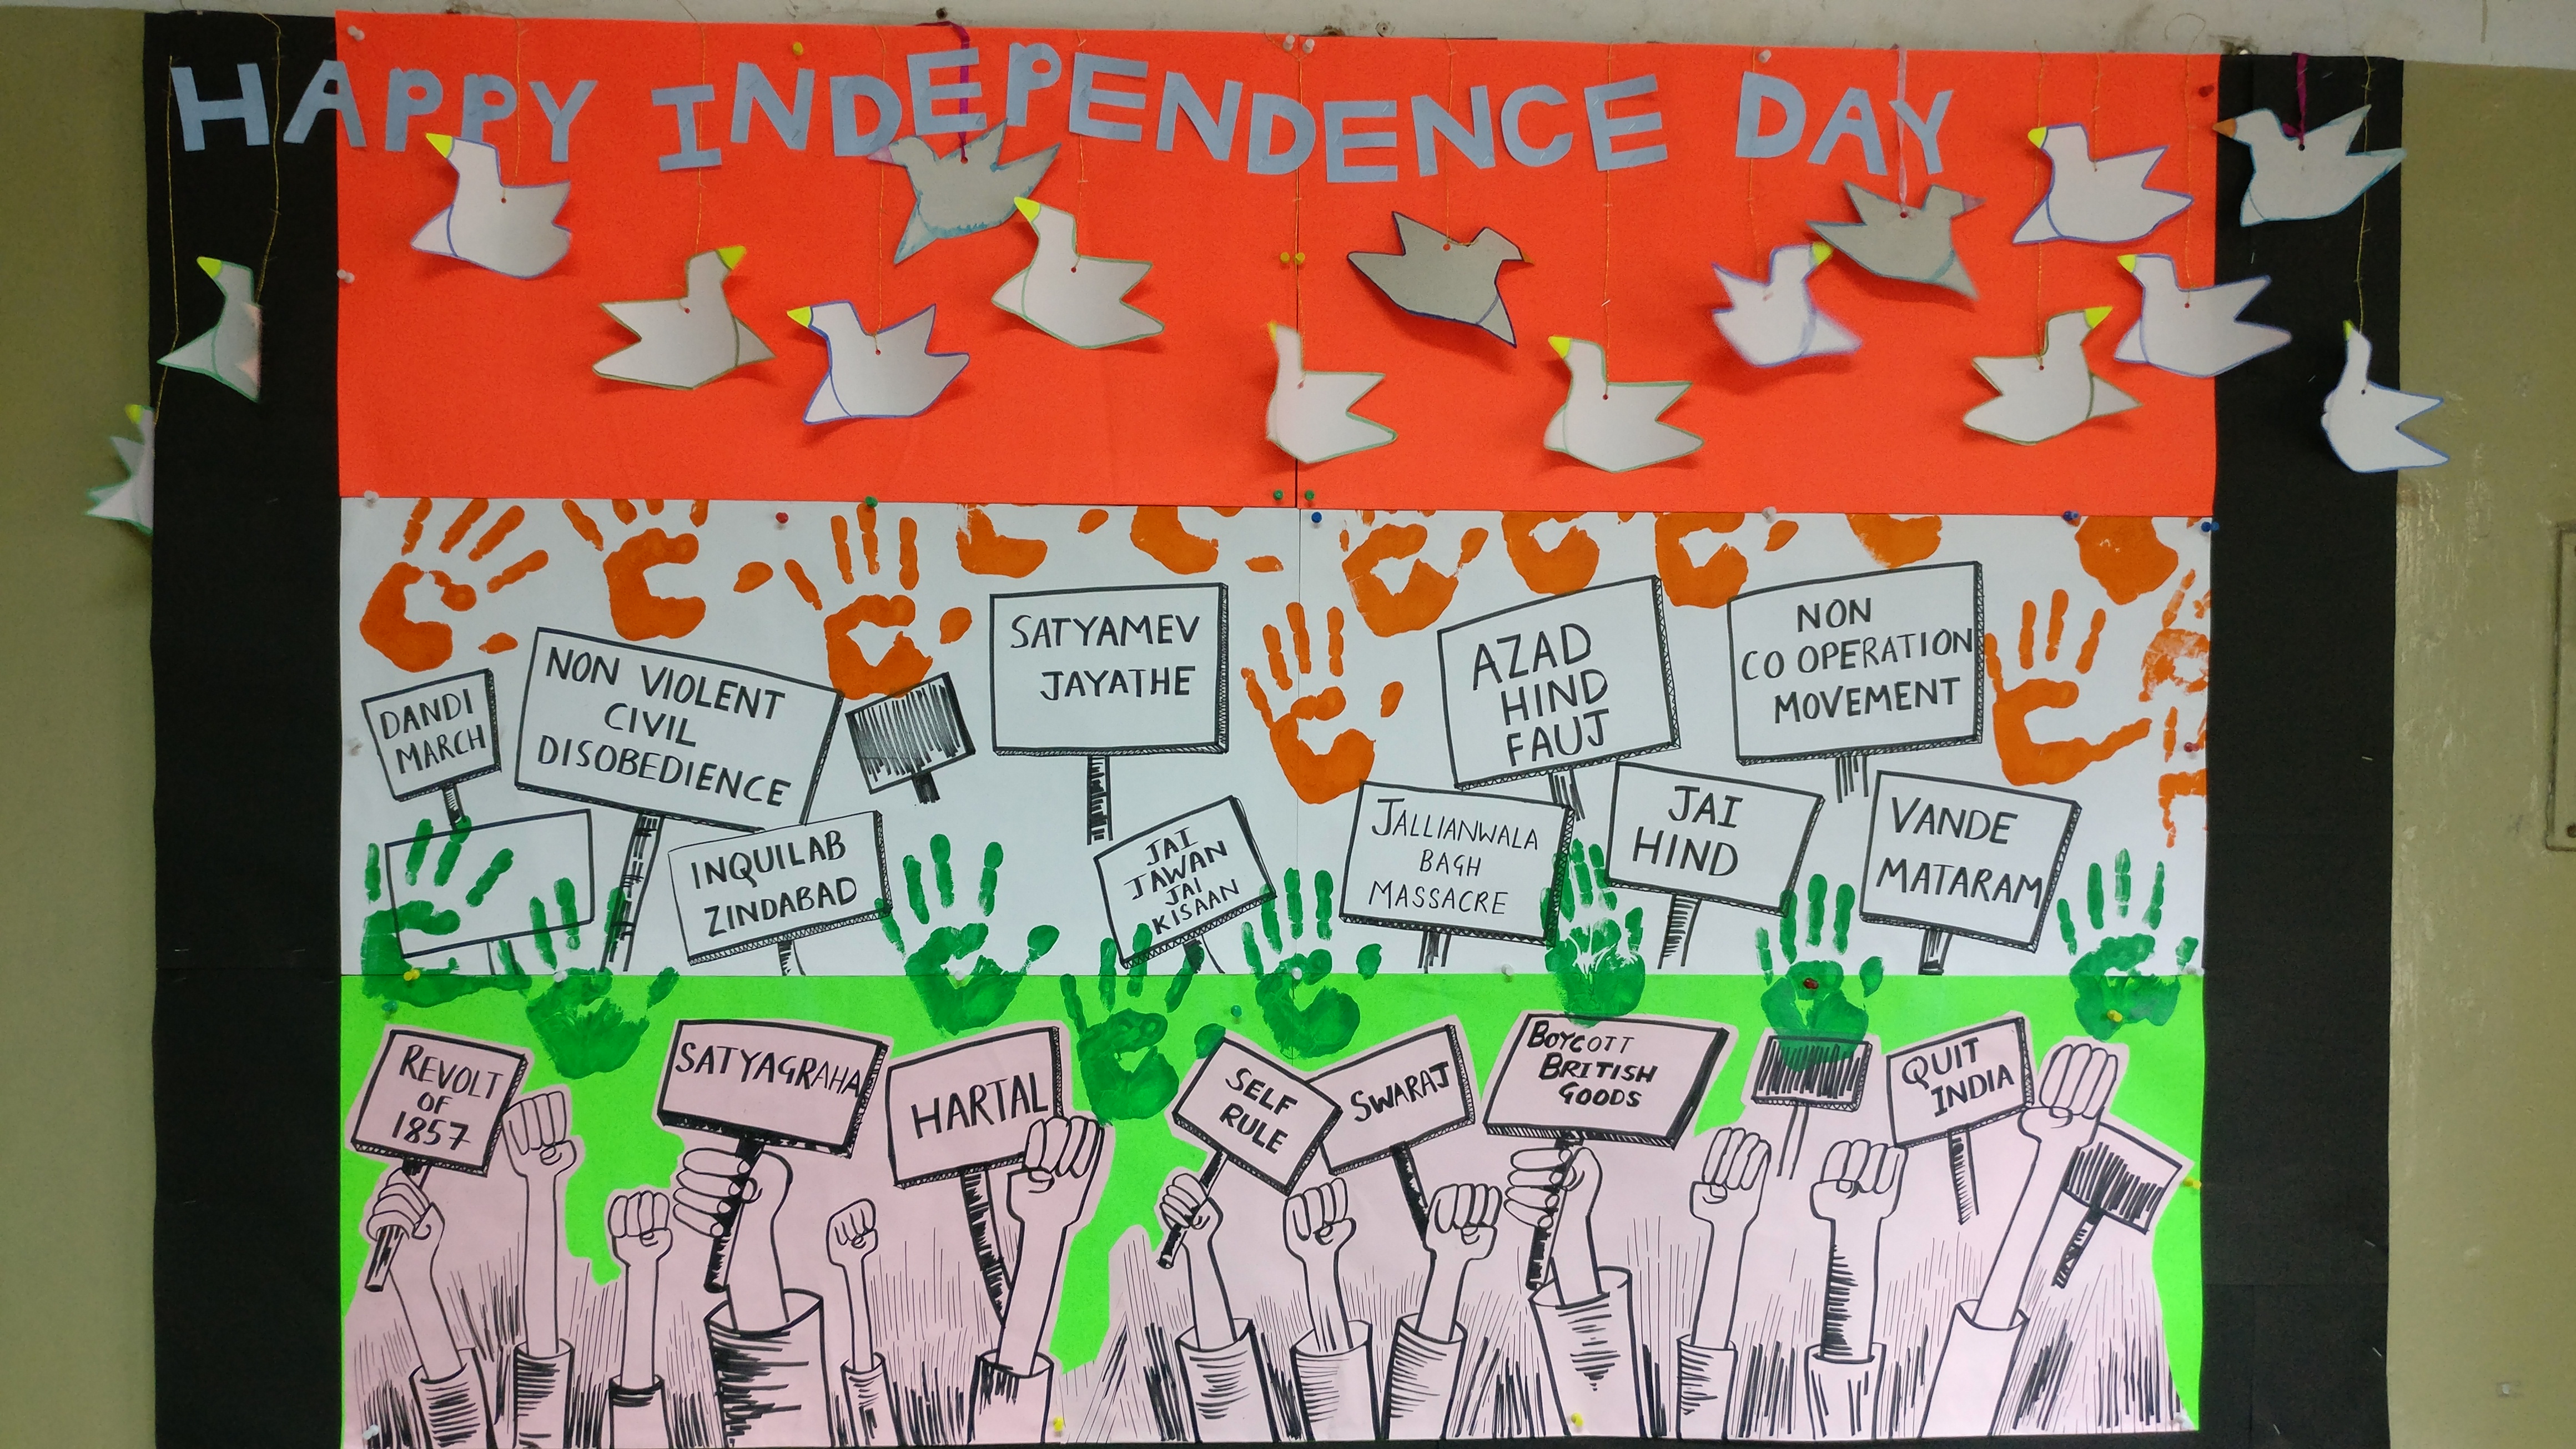 HAPPY INDEPENDENCE DAY
SATYAMEV
JAYATHE
AZAD
HIND
FAUJ
NON
CO OPERATION
MOVEMENT
DANDI
MARCH
NON VIOLENT
CIVIL
DISOBEDIENCE
INQUILAB
ZINDABAD
JAI
JAWAN
JAI
KISAAN
JALLIANWALA
BAGH
MASSACRE
JAI
HIND
VANDE
MATARAM
REVOLT
OF
1857
SATYAGRAHA
HARTAL
SELF
RULE
SWARAJ
BOYCOTT
BRITISH
GOODS
QUIT
INDIA